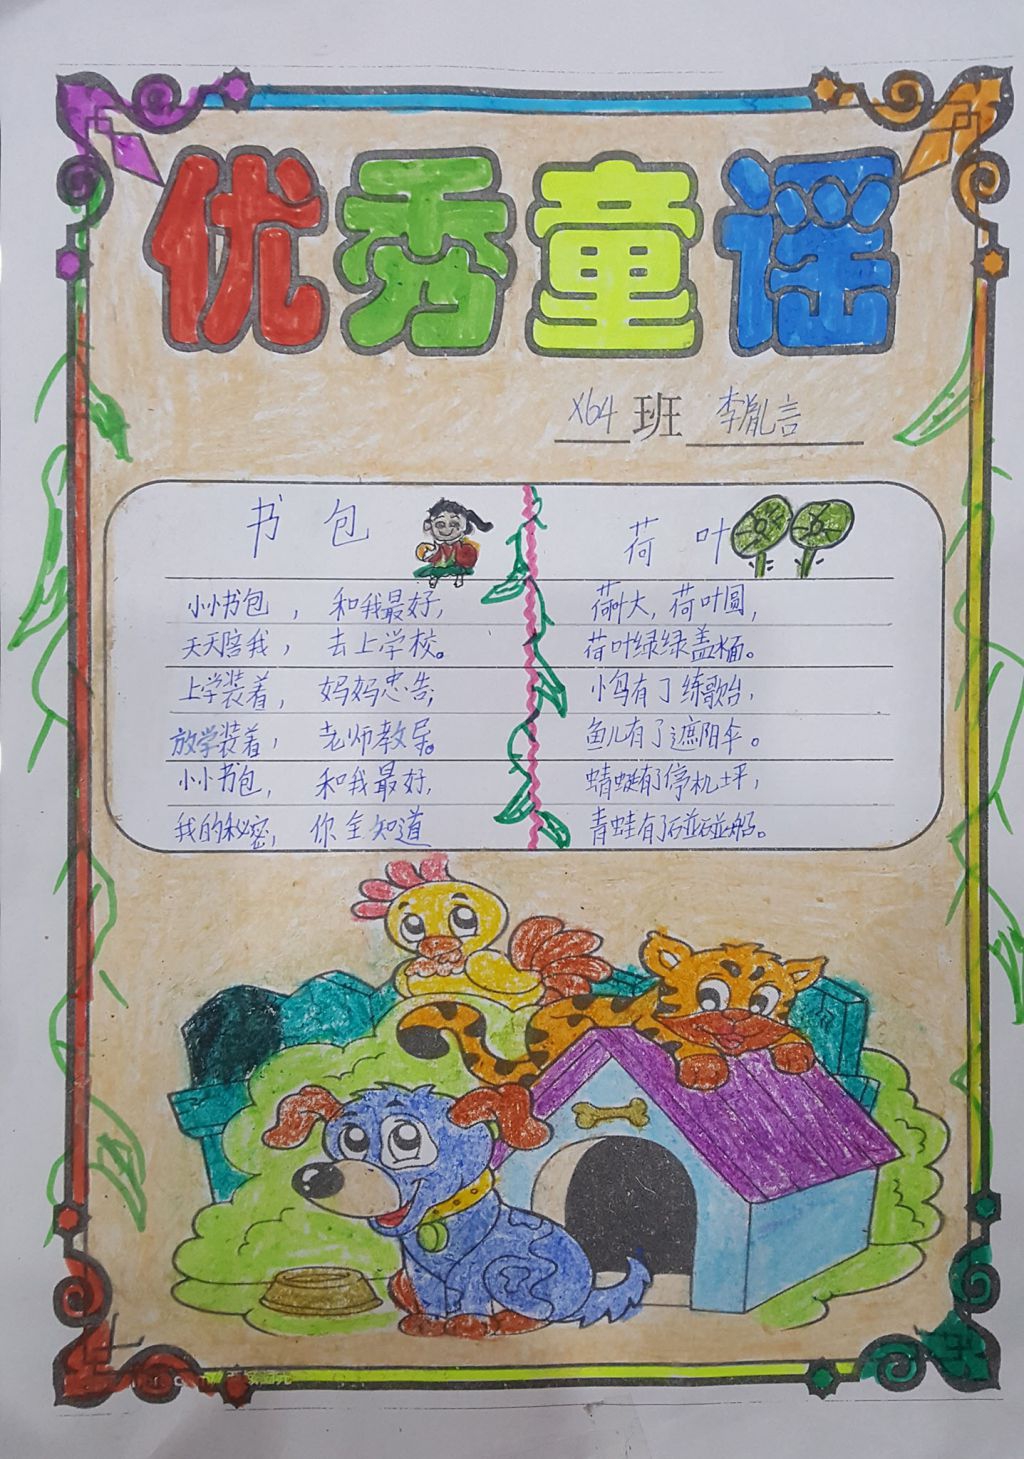 优秀童谣
X64班 李胤言
书包
小小书包，和我最好，
天天陪我，去上学校。
上学装着，妈妈忠告；
放学装着，老师教导。
小小书包，和我最好，
我的秘密，你全知道
荷叶
荷叶大，荷叶圆，
荷叶绿绿盖水面。
小鸟有了练歌台，
鱼儿有了遮阳伞。
蜻蜓有了停机坪，
青蛙有了碰碰船。